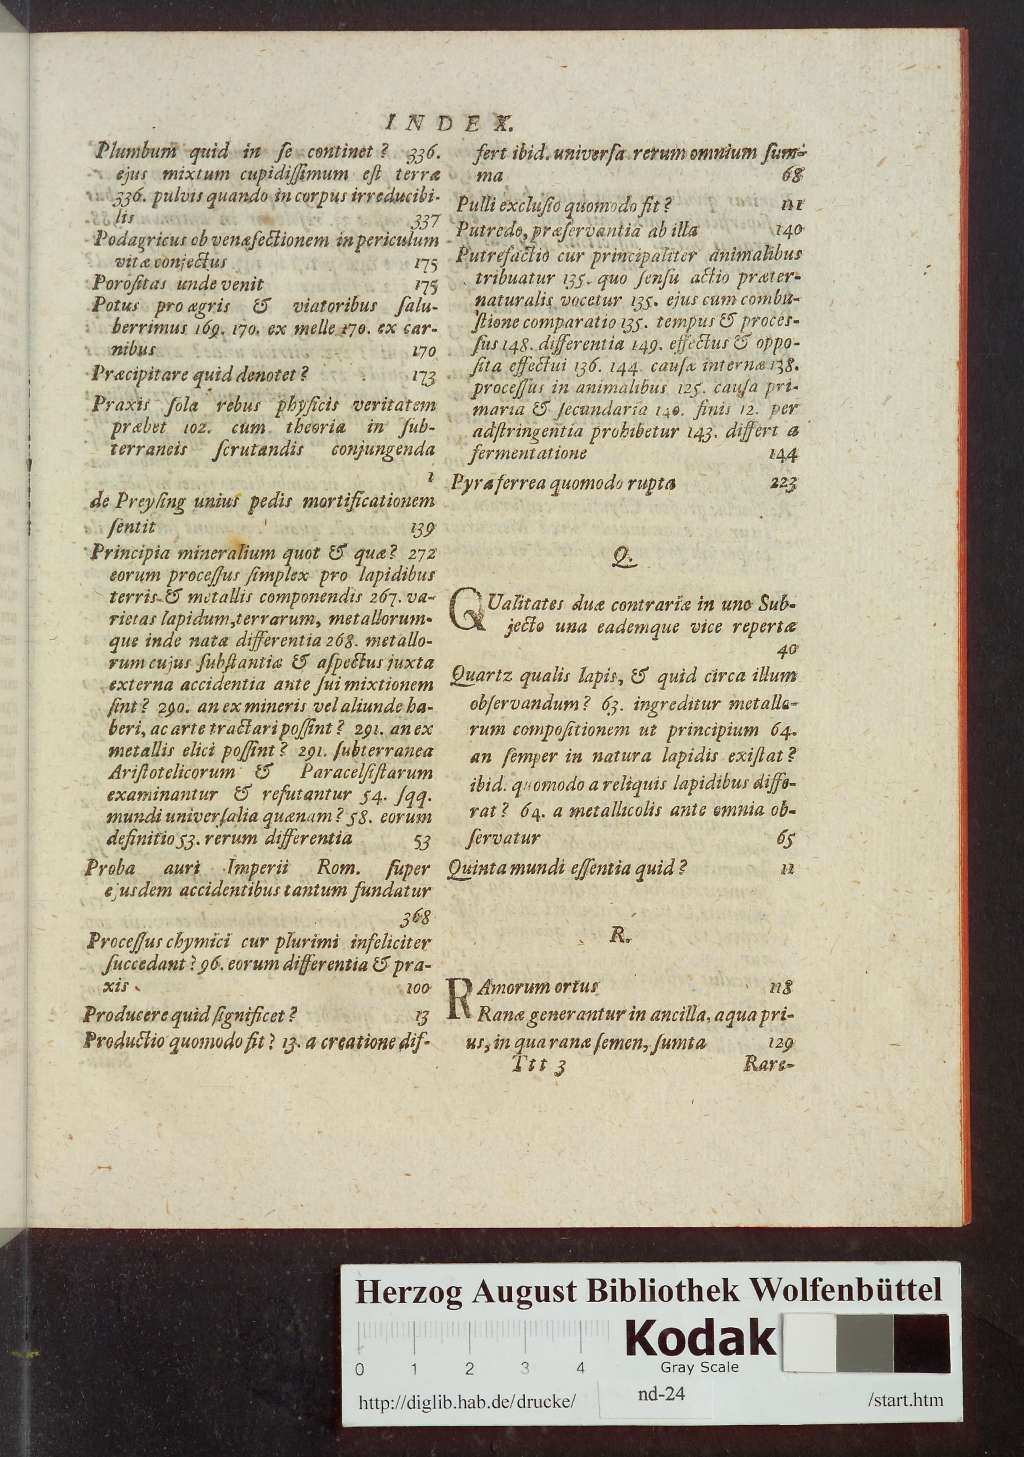 INDEX.
Plumbum quid in ſe continet? 336.
ejus mixtum cupidiſſimum eſt terræ
336. pulvis quando in corpus irreducibi-
lis 337
Podagricus ob venæſectionem in periculum
vitæ conjectus 175
Poroſitas unde venit 175
Potus pro ægris & viatoribus ſalu-
berrimus 169. 170. ex melle 170. ex car-
nibus 170
Præcipitare quid denotet? 173
Praxis ſola rebus phyſicis veritatem
præbet 102. cum theoria in ſub-
terraneis ſcrutandis conjungenda
1
de Preyſing unius pedis mortificationem
ſentit 139
Principia mineralium quot & quæ? 272
eorum proceſſus ſimplex pro lapidibus
terris & metallis componendis 267. va-
rietas lapidum, terrarum, metallorum-
que inde natæ differentia 268. metallo-
rum cujus ſubſtantiæ & aſpectus juxta
externa accidentia ante ſui mixtionem
ſint? 290. an ex mineris vel aliunde ha-
beri, ac arte tractari poſſint? 291. an ex
metallis elici poſſint? 291. ſubterranea
Ariſtotelicorum & Paracelſiſtarum
examinantur & refutantur 54. ſqq.
mundi univerſalia quænam? 58. eorum
definitio 53. rerum differentia 53
Proba auri Imperii Rom. ſuper
ejusdem accidentibus tantum fundatur
368
Proceſſus chymici cur plurimi infeliciter
ſuccedant? 96. eorum differentia & pra-
xis 100
Producere quid ſignificet? 13
Productio quomodo fit? 13. a creatione dif-
fert ibid. univerſa rerum omnium ſum-
ma 68
Pulli excluſio quomodo fit? 111
Putredo, præſervantia ab illa 140
Putrefactio cur principaliter animalibus
tribuatur 135. quo ſenſu actio præter-
naturalis vocetur 135. ejus cum combu-
ſtione comparatio 135. tempus & proceſ-
ſus 148. differentia 149. effectus & oppo-
ſita effectui 136. 144. cauſa internæ 138.
proceſſus in animalibus 125. cauſa pri-
maria & ſecundaria 140. finis 12. per
adſtringentia prohibetur 143. differt a
fermentatione 144
Pyra ferrea quomodo rupta 223
Q.
QUalitates duæ contrariæ in uno Sub-
jecto una eademque vice repertæ
40
Quartz qualis lapis, & quid circa illum
obſervandum? 63. ingreditur metallo-
rum compoſitionem ut principium 64.
an ſemper in natura lapidis exiſtat?
ibid. quomodo a reliquis lapidibus diffe-
rat? 64. a metallicolis ante omnia ob-
ſervatur 65
Quinta mundi eſſentia quid? 11
R.
RAmorum ortus 118
Ranæ generantur in ancilla, aqua pri-
us, in qua ranæ ſemen, ſumta 129
Ttt 3 Rare-
Herzog August Bibliothek Wolfenbüttel
Kodak
Gray Scale
0 1 2 3 4
http://diglib.hab.de/drucke/ nd-24 /start.htm